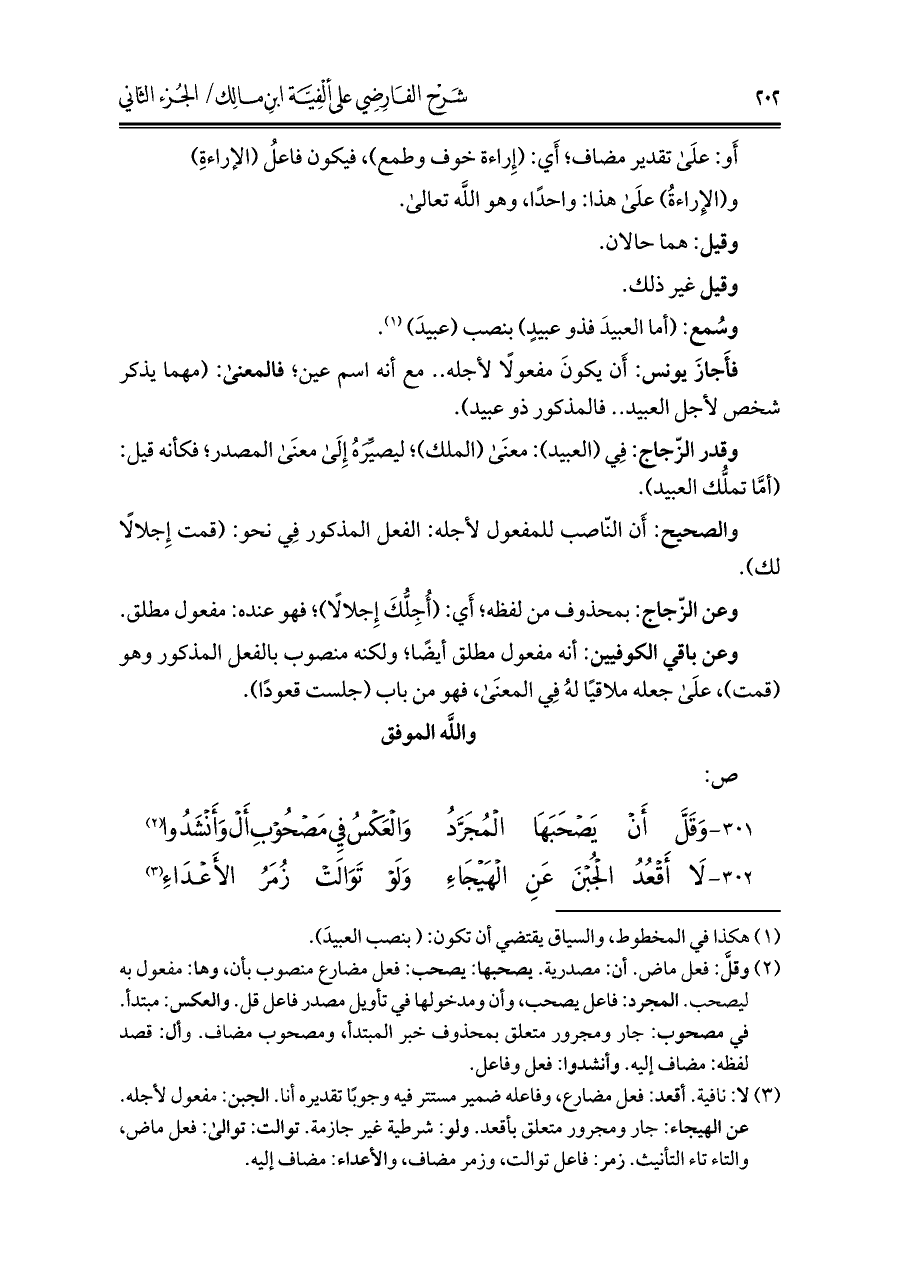 ٢٠٢ شَرْح الفَارِضِي على ألْفِيَّة ابنِ مالِك/ الجُزء الثاني
أَو: علَىٰ تقدير مضاف؛ أَي: (إِراءة خوف وطمع)، فيكون فاعلُ (الإراءةِ)
و(الإِراءةُ) علَىٰ هذا: واحدًا، وهو اللَّه تعالىٰ.
وقيل: هما حالان.
وقيل غير ذلك.
وسُمع: (أما العبيدَ فذو عبيدٍ) بنصب (عبيدَ) (١).
فأَجازَ يونس: أَن يكونَ مفعولًا لأجله.. مع أنه اسم عين؛ فالمعنىٰ: (مهما يذكر
شخص لأجل العبيد.. فالمذكور ذو عبيد).
وقدر الزّجاج: فِي (العبيد): معنَىٰ (الملك)؛ ليصيِّرَهُ إِلَىٰ معنَىٰ المصدر؛ فكأنه قيل:
(أمَّا تملُّك العبيد).
والصحيح: أَن النّاصب للمفعول لأجله: الفعل المذكور فِي نحو: (قمت إِجلالًا
لك).
وعن الزّجاج: بمحذوف من لفظه؛ أَي: (أُجِلُّكَ إِجلالًا)؛ فهو عنده: مفعول مطلق.
وعن باقي الكوفيين: أنه مفعول مطلق أيضًا؛ ولكنه منصوب بالفعل المذكور وهو
(قمت)، علَىٰ جعله ملاقيًا لهُ فِي المعنَىٰ، فهو من باب (جلست قعودًا).
واللَّه الموفق
ص:
٣٠١-وَقَلَّ أَنْ يَصْحَبَهَا الْمُجَرَّدُ وَالْعَكْسُ فِي مَصْحُوْبِ أَلْ وَأَنْشَدُوا(٢)
٣٠٢-لَا أَقْعُدُ الْجُبْنَ عَنِ الْهَيْجَاءِ وَلَوْ تَوَالَتْ زُمَرُ الأَعْدَاءِ(٣)
(١) هكذا في المخطوط، والسياق يقتضي أن تكون: ( بنصب العبيدَ).
(٢) وقلَّ: فعل ماض. أن: مصدرية. يصحبها: يصحب: فعل مضارع منصوب بأن، وها: مفعول به
ليصحب. المجرد: فاعل يصحب، وأن ومدخولها في تأويل مصدر فاعل قل. والعكس: مبتدأ.
في مصحوب: جار ومجرور متعلق بمحذوف خبر المبتدأ، ومصحوب مضاف. وأل: قصد
لفظه: مضاف إليه. وأنشدوا: فعل وفاعل.
(٣) لا: نافية. أقعد: فعل مضارع، وفاعله ضمير مستتر فيه وجوبًا تقديره أنا. الجبن: مفعول لأجله.
عن الهيجاء: جار ومجرور متعلق بأقعد. ولو: شرطية غير جازمة. توالت: توالىٰ: فعل ماض،
والتاء تاء التأنيث. زمر: فاعل توالت، وزمر مضاف، والأعداء: مضاف إليه.